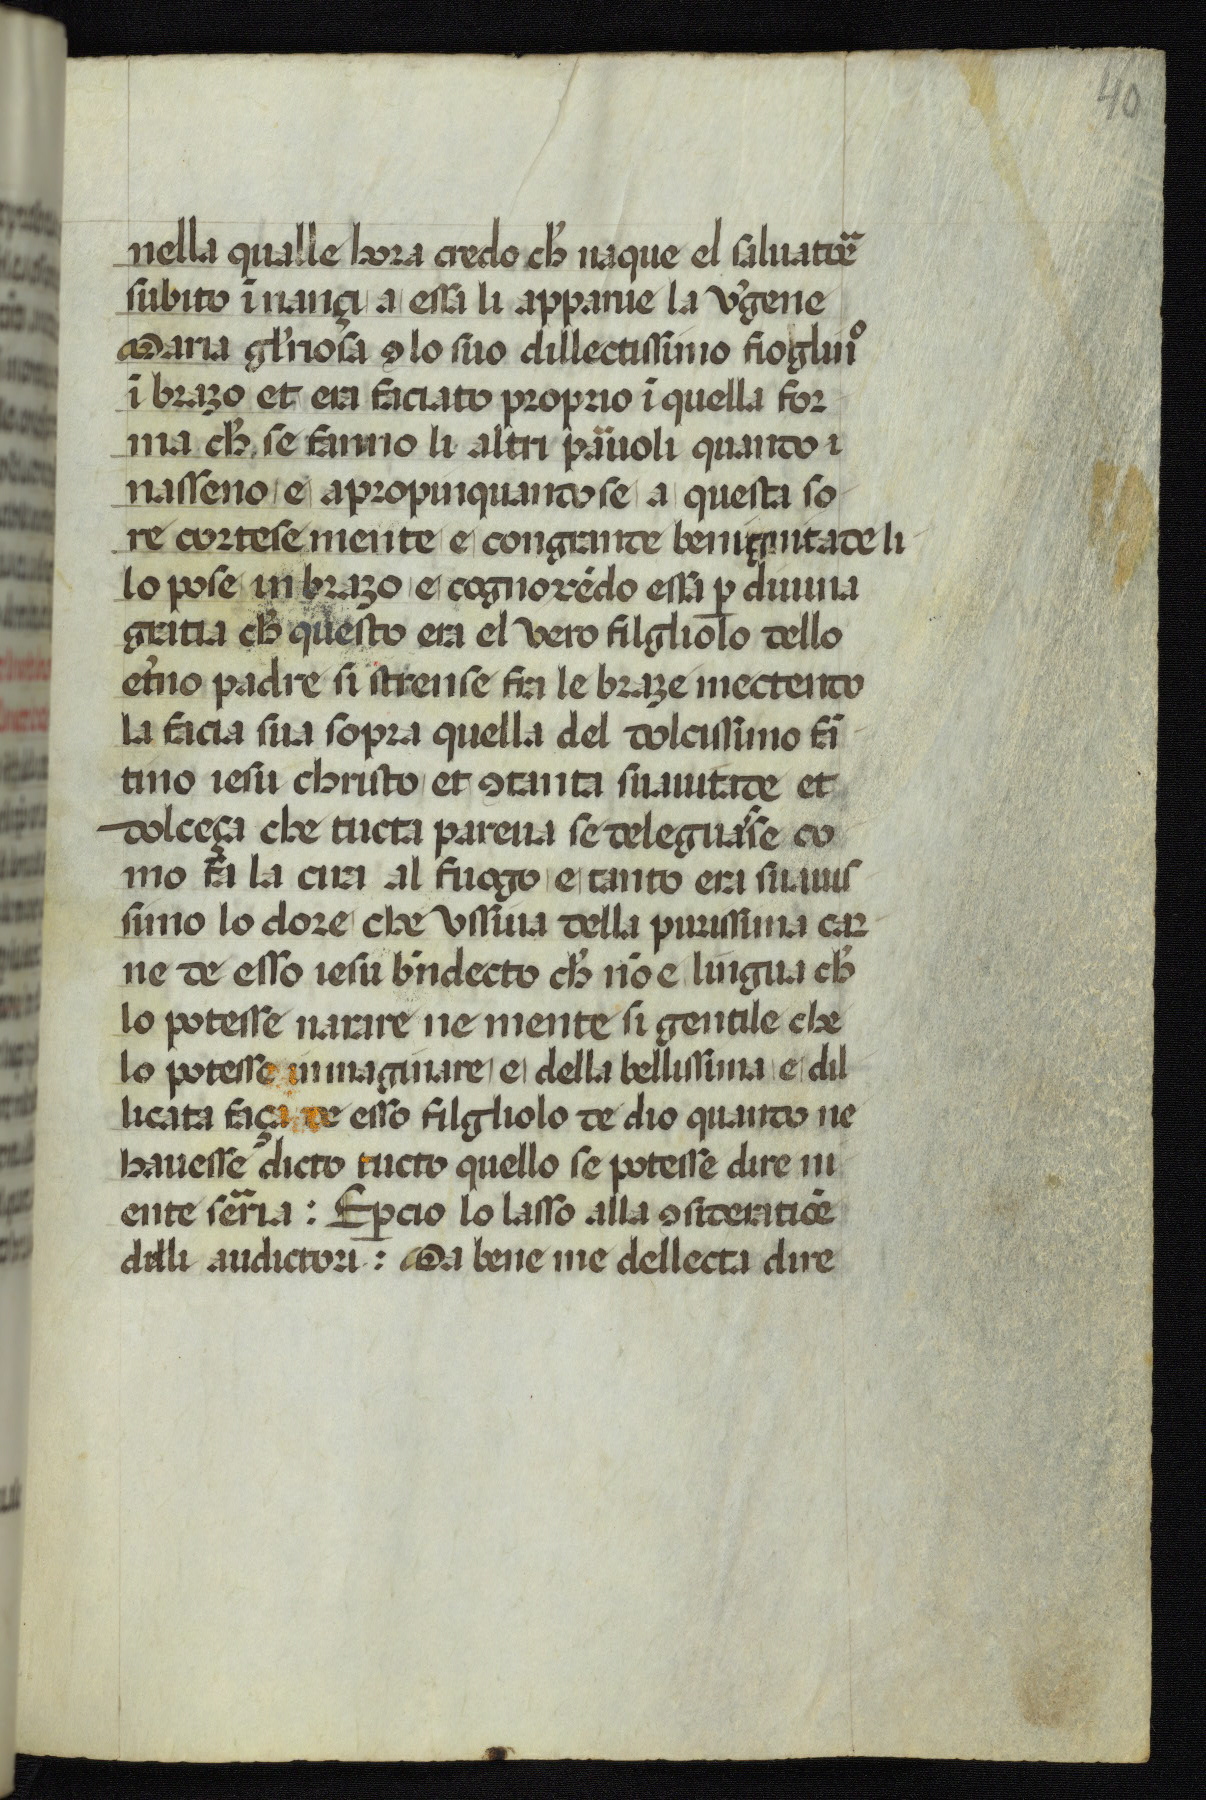 40
nella qualle hora credo ch̄ naque el saluatoē
subito īnançi a essa li apparue la v̄gene
Maria gl̄riosa ꝯ lo suo dillectissimo fiogliuo
ī brazo et era faciato proprio ī quella for
ma ch̄ se fanno li altri paruoli quando i
nasseno e apropinquandose a questa so
re cortesemente e congrande benignitade li
lo pose in brazo e cognorēdo essa ꝑ diuina
gratia ch̄ questo era el vero filgliolo dello
et̄no padre si strense fra le braze mectendo
la facia sua sopra quella del dolcissimo fā
tino iesu christo et ꝯ tanta suauitade et
dolceça che tucta pareua se deleguasse co
mo fa la cira al fuogo e tanto era suauis
simo lo dore che vssiua della purissima car
ne de esso iesu b̄ndecto ch̄ nō e lingua ch̄
lo potesse narare ne mente si gentile che
lo potesse inmaginare e della bellissima e dil
licata faça de esso filgliolo de dio quando ne
hauesse dicto tucto quello se potesse dire ni
ente sēria : Eꝑcio lo lasso alla ꝯsideratiōe
delli audictori : Ma bene me dellecta dire